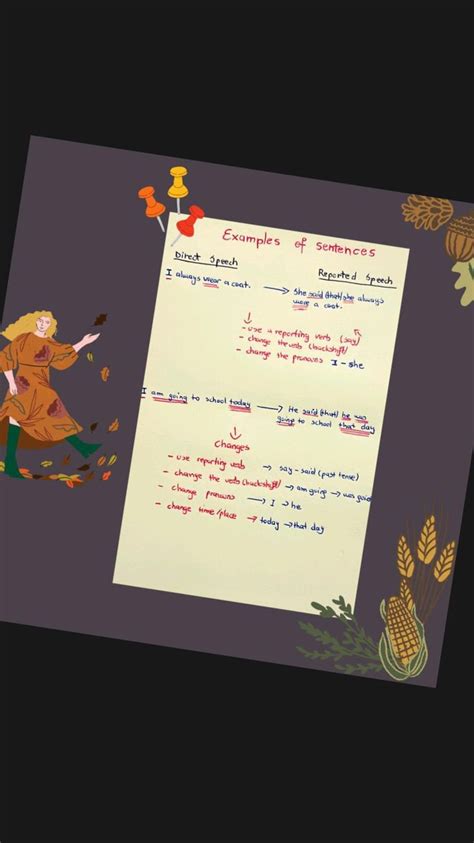 Examples of sentences
Direct Speech
Reported Speech
I always wear a coat. → She said (that) she always
wore a coat.
- use a reporting verbs (say)
- change the verbs (backshift)
- change the pronouns I - she
I am going to school today → He said (that) he was
going to school that day
Changes
- use reporting verb → say - said (past tense)
- change the verbs (backshift) → am going → was going
- change pronouns → I → he
- change time/place → today → that day